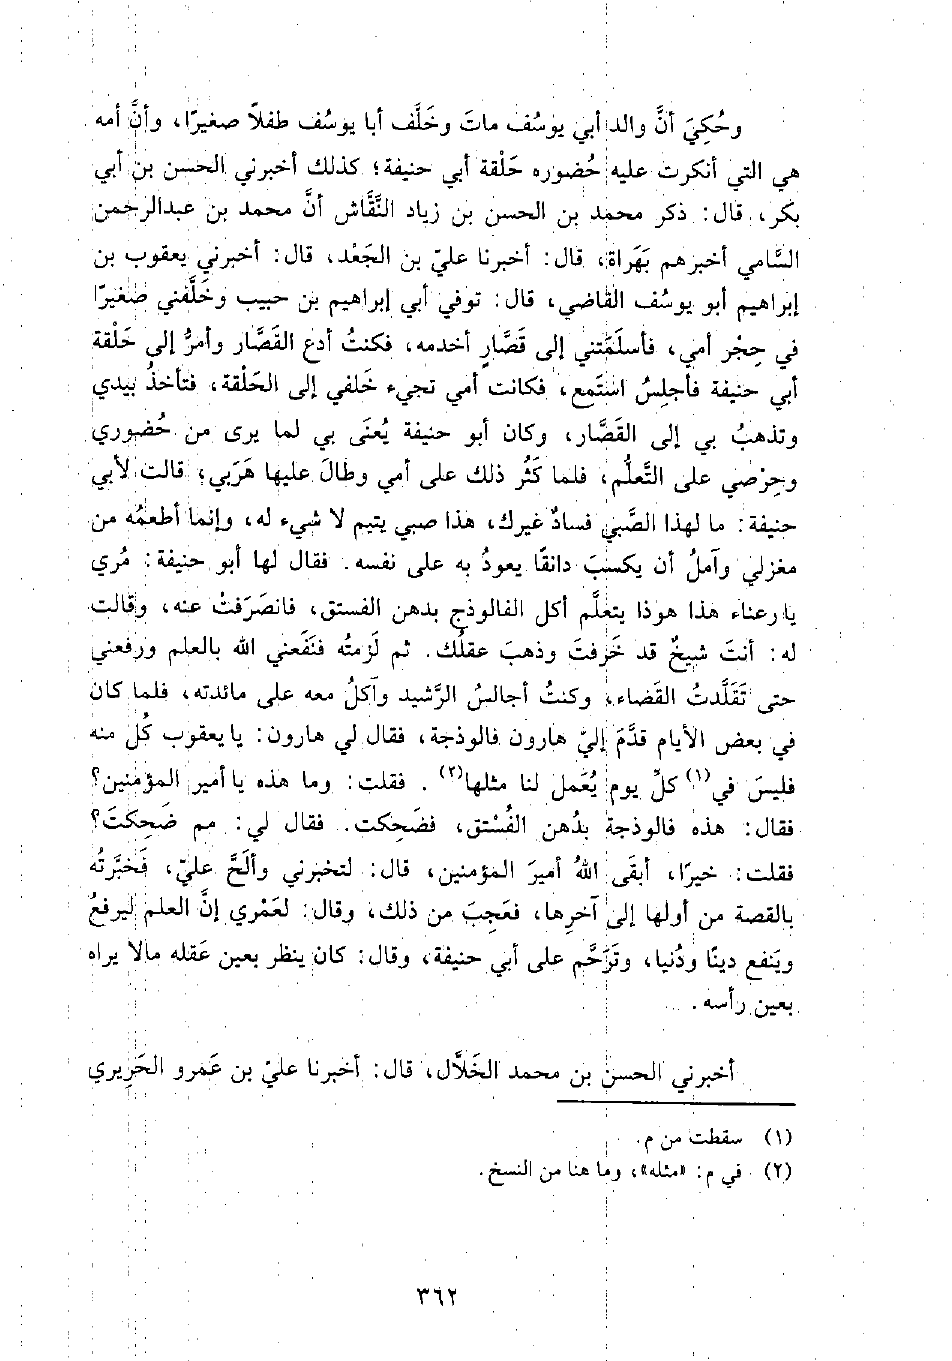 وحُكِيَ أنَّ والد أبي يوسُف ماتَ وخَلَّف أبا يوسُف طفلاً صغيرًا، وأنَّ أمه
هي التي أنكرت عليه حُضوره حَلْقة أبي حنيفة؛ كذلك أخبرني الحسن بن أبي
بكر، قال: ذكر محمد بن الحسن بن زياد النَّقَّاش أنَّ محمد بن عبدالرحمن
السَّامي أخبرهم بَهَراة، قال: أخبرنا عليّ بن الجَعْد، قال: أخبرني يعقوب بن
إبراهيم أبو يوسُف القاضي، قال: توفي أبي إبراهيم بن حبيب وخَلَّفني صَغيرًا
في حِجْر أمي، فأسلَمَتني إلى قَصَّارٍ أخدمه، فكنتُ أدع القَصَّار وأمرُّ إلى حَلْقة
أبي حنيفة فأجلِسُ استَمع، فكانت أمي تجيء خَلفي إلى الحَلْقة، فتأخذُ بيدي
وتذهبُ بي إلى القَصَّار، وكان أبو حنيفة يُعنَى بي لما يرى من حُضوري
وحِرْصي على التَّعلُّم، فلما كَثُر ذلك على أمي وطالَ عليها هَرَبي، قالت لأبي
حنيفة: ما لهذا الصَّبي فسادٌ غيرك، هذا صبي يتيم لا شيء له، وإنما أطعمُه من
مغزلي وآملُ أن يكسبَ دانقًا يعودُ به على نفسه. فقال لها أبو حنيفة: مُري
يا رعناء هذا هوذا يتعلَّم أكل الفالوذج بدهن الفستق، فانصَرَفتْ عنه، وقالت
له: أنتَ شيخٌ قد خَرِفتَ وذهبَ عقلُك. ثم لَزِمتُه فنَفَعني الله بالعلم ورفعني
حتى تَقَلَّدتُ القَضاء، وكنتُ أجالسُ الرَّشيد وآكلُ معه على مائدته، فلما كان
في بعض الأيام قدَّمَ إليّ هارون فالوذجة، فقال لي هارون: يا يعقوب كُل منه
فليسَ في(١) كلِّ يوم يُعَمل لنا مثلها(٢). فقلت: وما هذه يا أمير المؤمنين؟
فقال: هذه فالوذجة بدُهن الفُسْتق، فضَحِكت. فقال لي: مم ضَحِكتَ؟
فقلت: خيرًا، أبقَى اللهُ أميرَ المؤمنين، قال: لتخبرني وألَحَّ عليّ، فَخبَّرتُه
بالقصة من أولها إلى آخرِها، فعَجِبَ من ذلك، وقال: لعَمْري إنَّ العلم ليرفعُ
ويَنفع دينًا ودُنيا، وتَرَحَّم على أبي حنيفة، وقال: كان ينظر بعين عَقله مالا يراه
بعين رأسه.
أخبرني الحسن بن محمد الخَلاَّل، قال: أخبرنا عليّ بن عَمرو الحَرِيري
(١) سقطت من م.
(٢) في م: «مثله»، وما هنا من النسخ.
٣٦٢